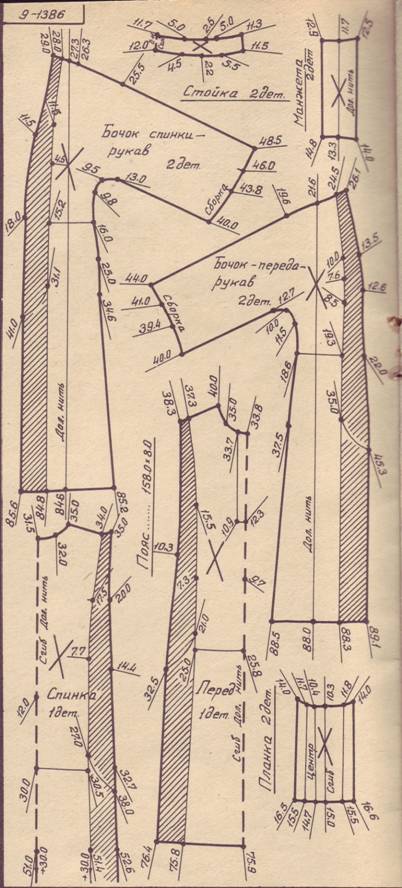 9-1386
29.0
28.0
27.3
26.3
11.7
5.0
2.5
5.0
11.3
12.0
4.5
2.2
5.5
11.5
Стойка 2дет.
25.5
Бочок спинки-
рукав
2дет.
11.5
4.5
9.5
13.0
9.8
48.5
46.0
43.8
40.0
сборка
18.0
15.2
16.0
25.0
31.1
34.6
41.0
Дол. нить
85.6
84.8
84.6
85.2
Манжета
2дет
11.7
12.5
Дол. нить
14.8
13.3
14.0
19.6
21.6
24.5
26.1
Бочок-переда-
рукав
2дет.
44.0
41.0
39.4
40.0
сборка
12.7
10.0
11.5
10.0
7.6
8.5
13.5
12.6
18.6
19.3
22.0
37.5
35.0
45.3
Дол. нить
88.5
88.0
88.3
89.1
Пояс...... 158.0×8.0
38.3
37.3
40.0
35.0
33.8
33.7
15.5
10.9
12.3
10.3
7.3
9.7
21.0
25.0
25.8
32.5
Перед
1дет.
Сгиб дол. нить
76.4
75.8
75.9
31.5
35.0
32.0
34.0
35.0
Сгиб дол. нить
17.5
20.0
7.7
14.4
Спинка
1дет.
12.0
27.0
30.0
30.5
32.7
38.0
51.0
+30.0
51.4
+30.0
52.6
Планка 2дет.
14.0
10.4
10.3
11.8
14.0
Центр
Сгиб
16.5
15.5
14.7
15.0
15.5
16.6